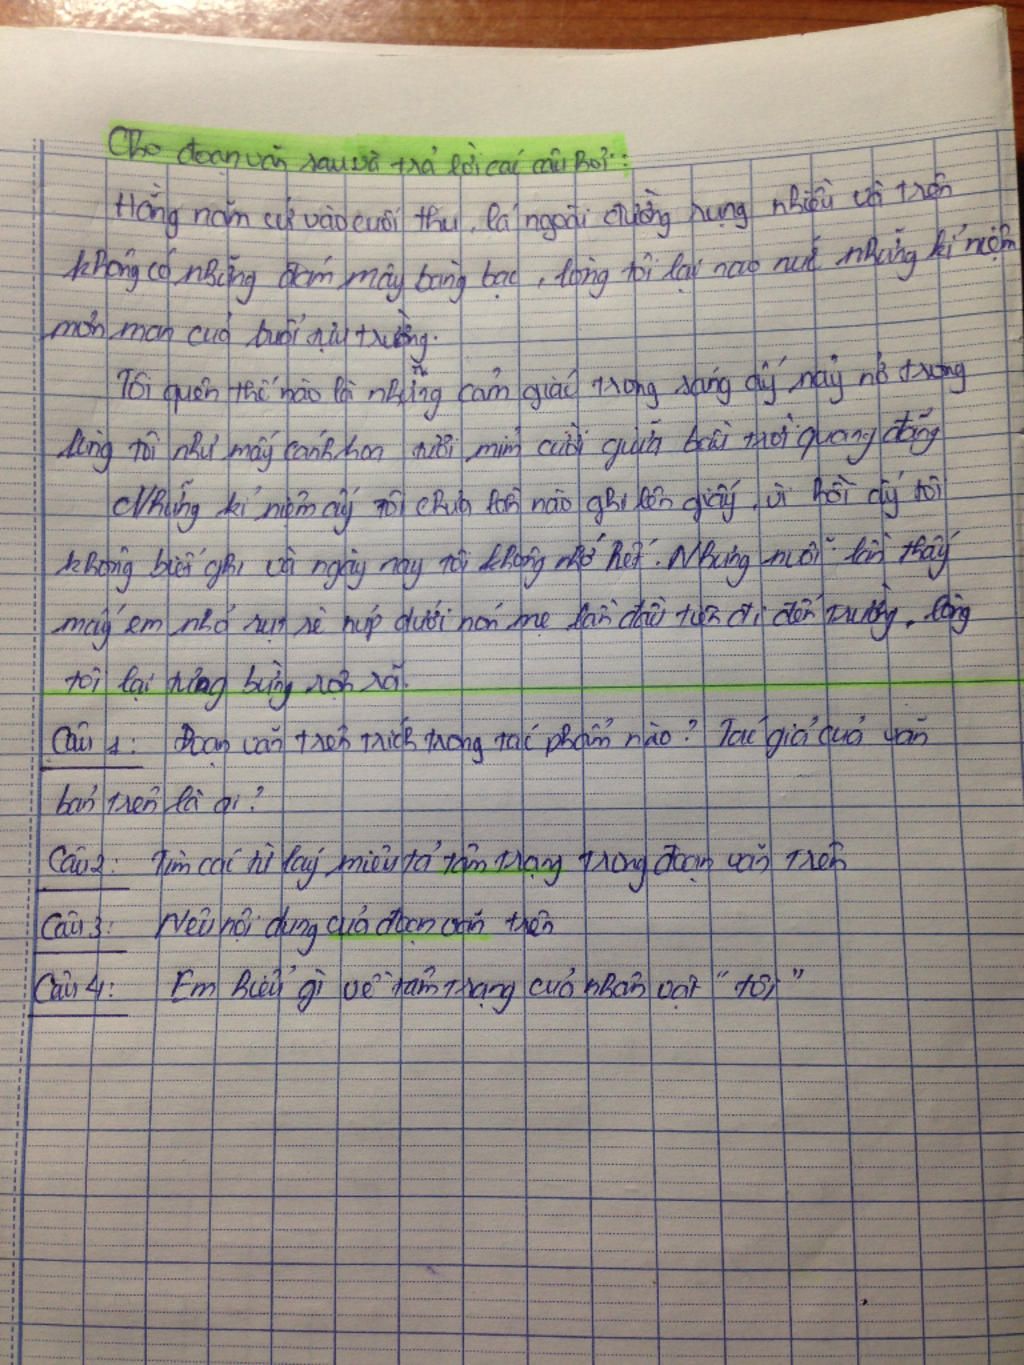 Cho đoạn văn sau và trả lời các câu hỏi:
Hằng năm cứ vào cuối thu, lá ngoài đường rụng nhiều và trên
không có những đám mây bàng bạc, lòng tôi lại nao nức những kỉ niệm
mơn man của buổi tựu trường.
Tôi quên thế nào là những cảm giác trong sáng ấy nảy nở trong
lòng tôi như mấy cánh hoa tươi mỉm cười giữa bầu trời quang đãng
Những kỉ niệm ấy tôi chưa lần nào ghi lên giấy, vì hồi ấy tôi
không biết ghi và ngày nay tôi không nhớ hết. Nhưng mỗi lần thấy
mấy em nhỏ rụt rè núp dưới nón mẹ lần đầu tiên đi đến trường, lòng
tôi lại tưng bừng rộn rã.
Câu 1: Đoạn văn trên trích trong tác phẩm nào? Tác giả của văn
bản trên là ai?
Câu 2: Tìm các từ láy miêu tả tâm trạng trong đoạn văn trên
Câu 3: Nêu nội dung của đoạn văn trên
Câu 4: Em hiểu gì về tâm trạng của nhân vật "tôi"